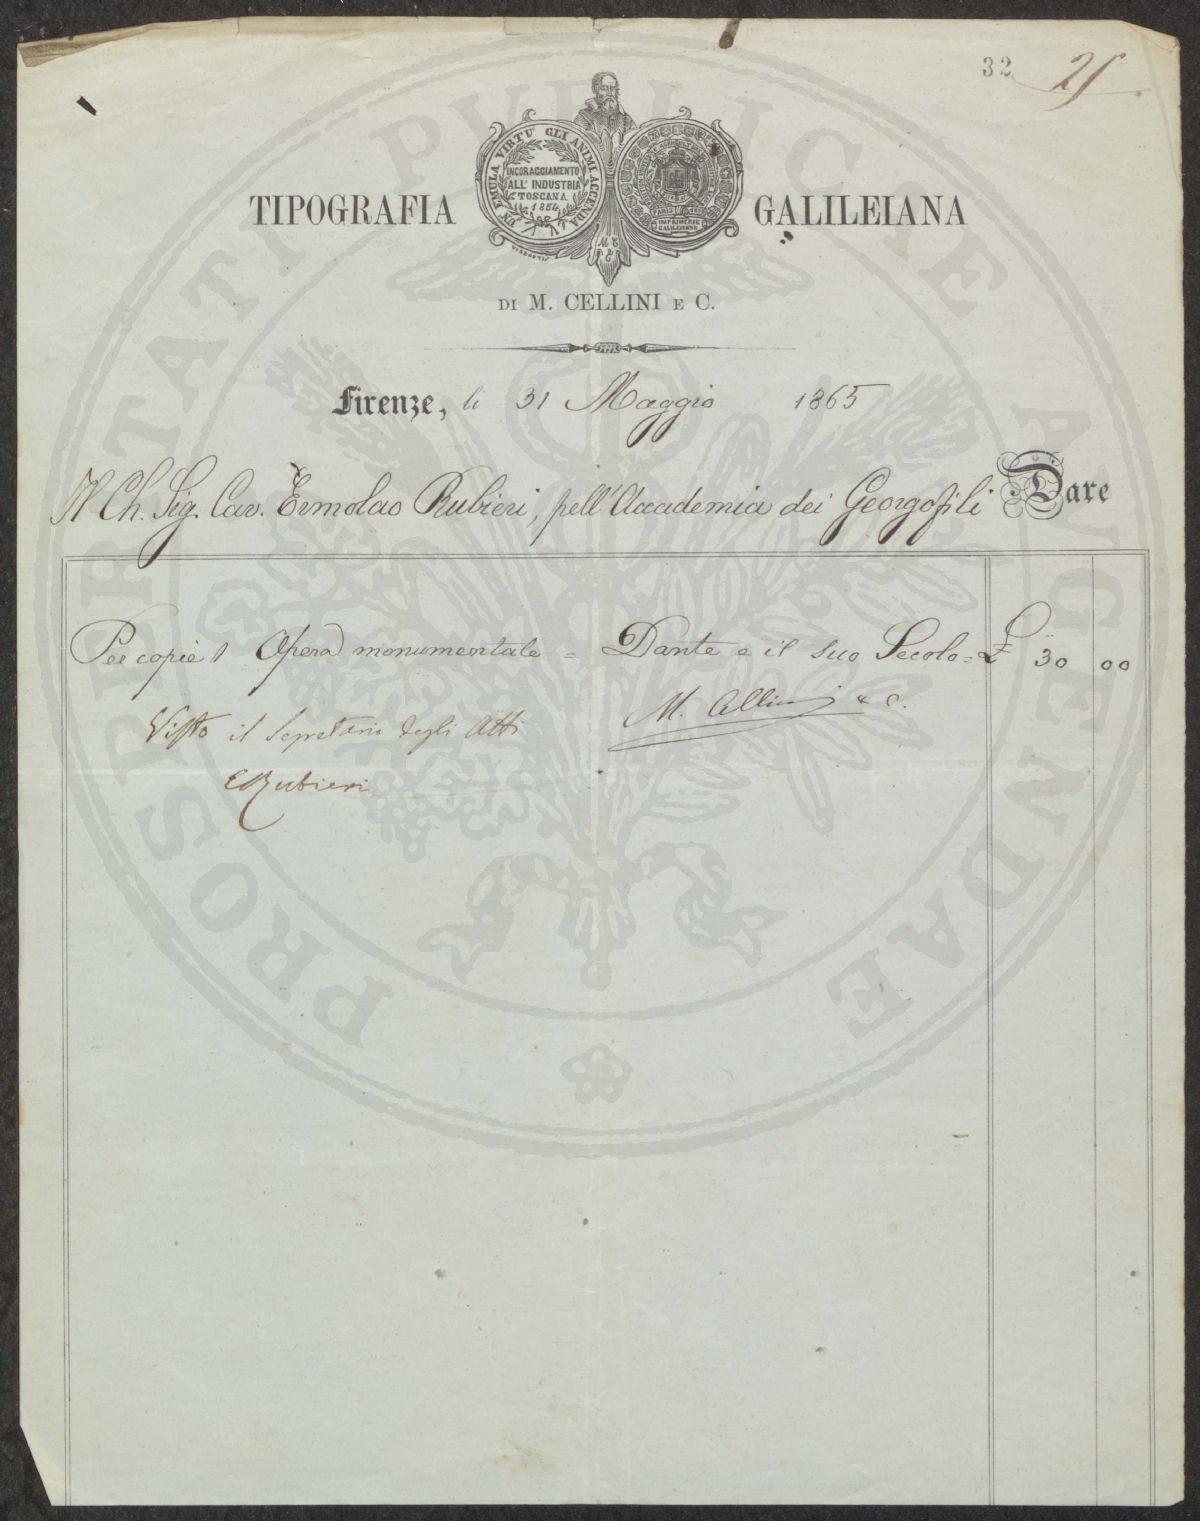 32 25
UN'EMULA VIRTU' GLI ANIMI ACCENDA
INCORAGGIAMENTO
ALL'INDUSTRIA
TOSCANA
1854
IMPRIMERIE
GALILEIENNE
M C
& C
TIPOGRAFIA GALILEIANA
DI M. CELLINI E C.
Firenze, li 31 Maggio 1865
Il Ch. Sig. Cav. Ermolao Rubieri, pell'Accademia dei Georgofili Dare
Per copie 1 Opera monumentale = Dante e il suo Secolo = £ 30 00
M. Cellini & C.
Visto il Segretario degli Atti
ERubieri
PROSPERITATI PVBLICAE AVGENDAE